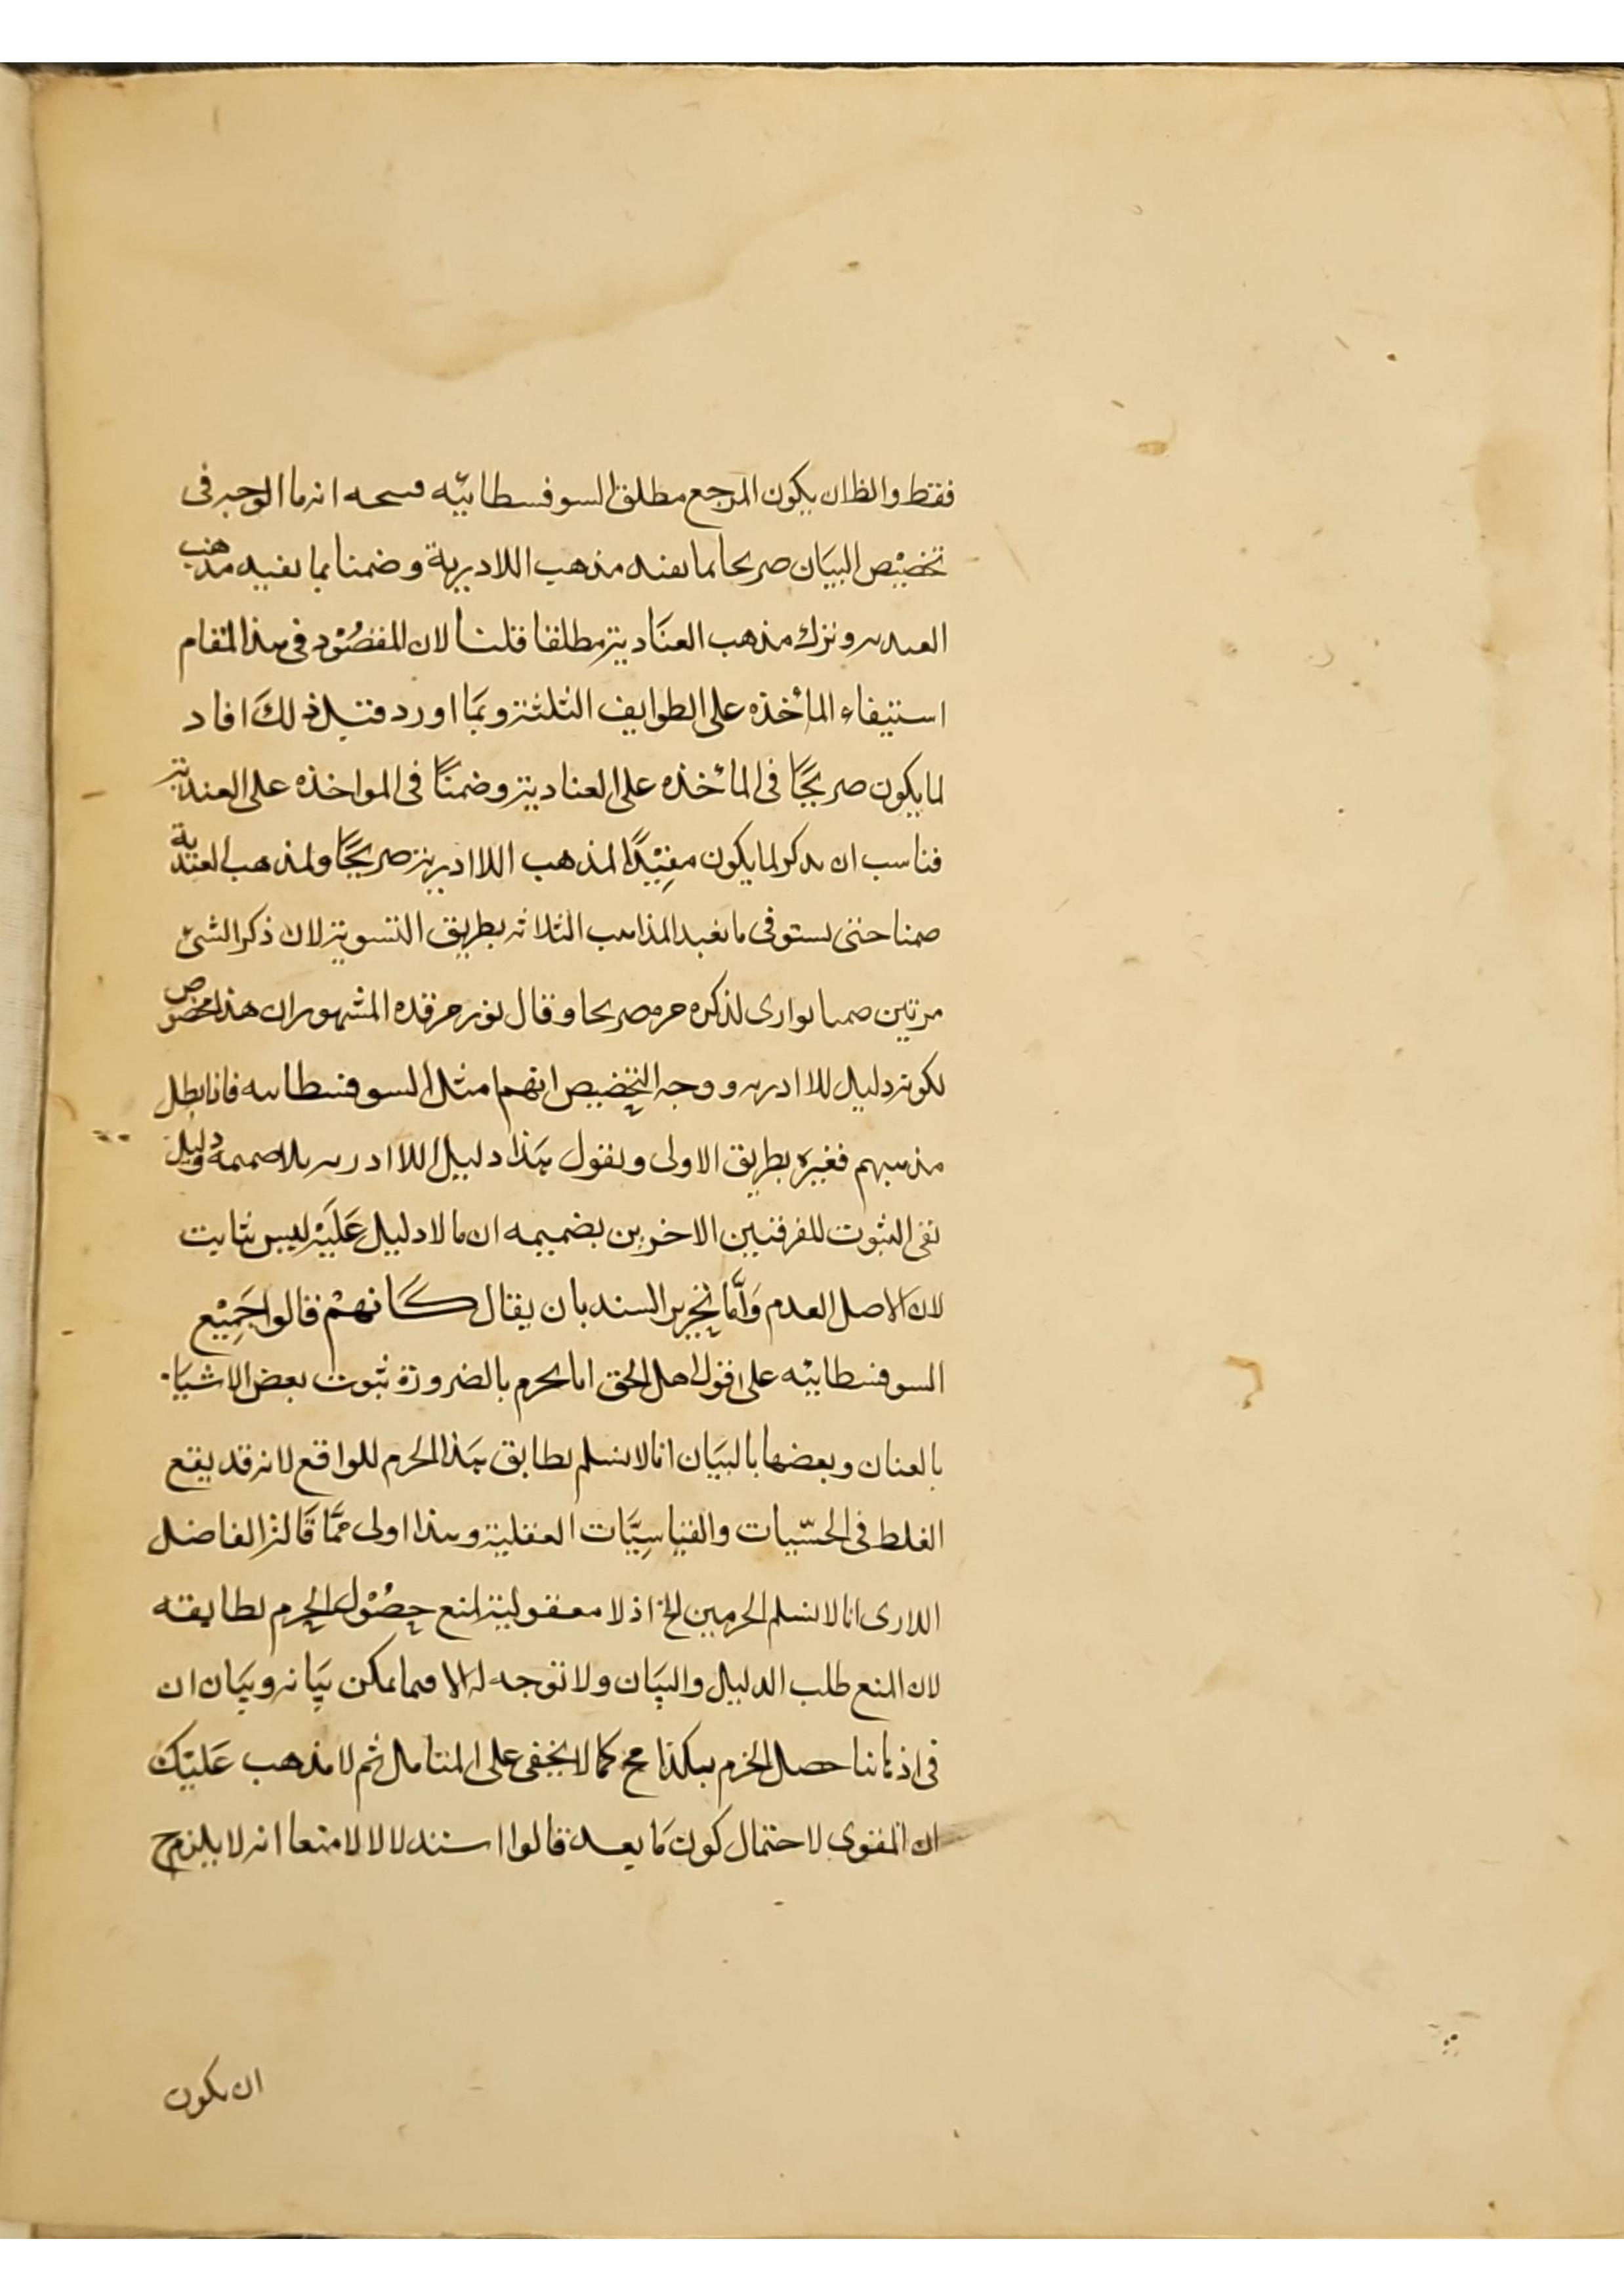 فقط والظان يكون المرجع مطلق السوفسطائيّه فيتجه انه ما الوجه فى
تخصيْص البيَان صريحا بما يفيد مذهب اللاديرية وضمنا بما يفيد مذهب
العنديه وترك مذهب العنَاديه مطلقا قلنا لان المقصُوْد فى هذا المقام
استيفاء المأخذه على الطوايف الثلثه وبمَا اورد قبل ذلكَ افاد
لما يكون صريحًا فى المأخذه على العناديه وضمنًا فى المواخذه على العنديه
فناسب ان يذكر لما يكون مفِيْدًا لمذهب اللاادريه صريحًا ولمذهب العندية
ضمنا حتى يستوفى ما يفيد المذاهب الثلاثه بطريق التسويه لان ذكر الشئ
مرتين ضمنا يوارى لذكره مره صريحا وقال نور مرقده المشهور ان هذا مخصوص
لكونه دليل للاادريه ووجه التخصيص انهم امثل السوفسطائيه فاذا بطل
مذهبهم فغيره بطريق الاولى ونقول هَذا دليل اللاادريه بلا ضميمه ودليل
نفى الثبوت للفرقتين الاخرين بضميمه ان ما لا دليل عَليَهْ ليس بثابت
لان الاصل العدم وَامَّا تحرير السند بان يقال كَانهمْ قالوا جَمِيْع
السوفسطائيْه على قول اهل الحق انا نجزم بالضرورة ثبوت بعض الاشيَاء
بالعنان وبعضها بالبيَان انا لا نسلم تطابق هَذا الجزم للواقع لانه قد يقع
الغلط فى الحسّيات والقيَاسِيَّات العقلية وهذا اولى ممَّا قَالهْ الفاضل
اللارى انا لا نسلم الجزمين الخ اذ لا معقوليه لمنع حِصُوْل الجزم لطايفه
لان المنع طلب الدليل والبيَان ولا توجه له الا فيما يمكن بيَانه وبيَان ان
فى اذهاننا حصل الجزم هكذا مح كما لا يخفى على المتامل ثم لا مذهب عَليْك
ان المقوى لاحتمال كون مَا بعد قالوا استدلالا لا منعا انه لا يلزم ح
ان يكون